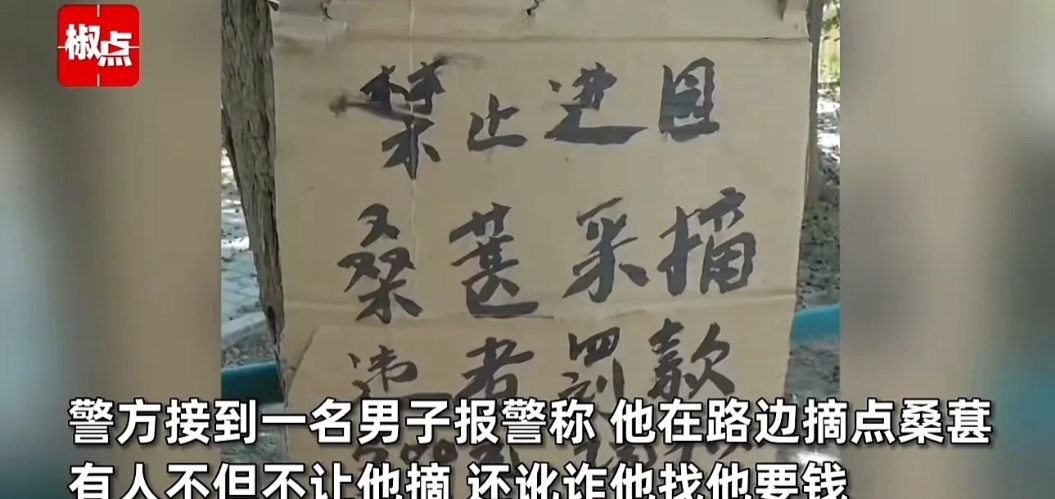 椒点
禁止进园
桑葚采摘
违者罚款
警方接到一名男子报警称 他在路边摘点桑葚
有人不但不让他摘 还讹诈他找他要钱